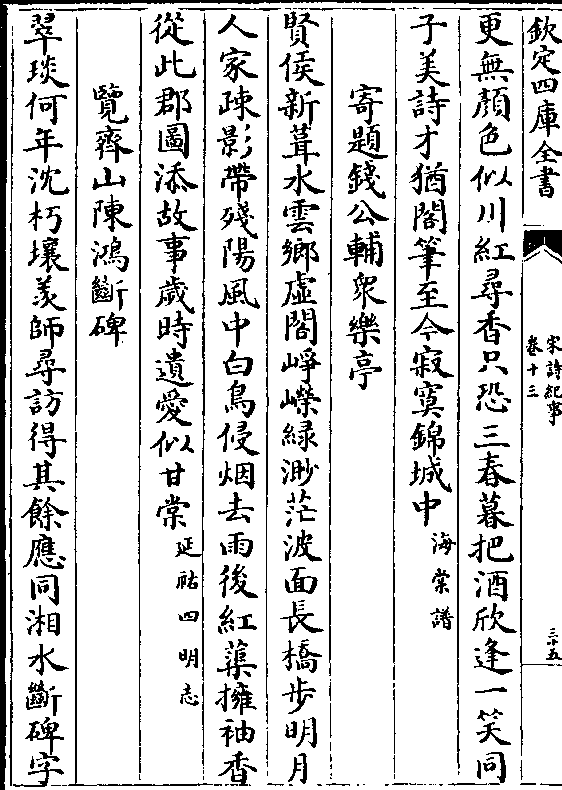 欽定四庫全書
宋詩紀事
卷十三
三十五
更無顔色似川紅尋香只恐三春暮把酒欣逢一笑同
子美詩才猶閣筆至今寂寞錦城中海棠譜
寄題錢公輔衆樂亭
賢侯新葺水雲鄉虛閣崢嶸緑渺茫波面長橋步明月
人家疎影帶殘陽風中白鳥侵烟去雨後紅蕖擁袖香
從此郡圖添故事歳時遺愛似甘棠延祐四明志
覽齊山陳鴻斷碑
翠琰何年沈朽壤羡師尋訪得其餘應同湘水斷碑字